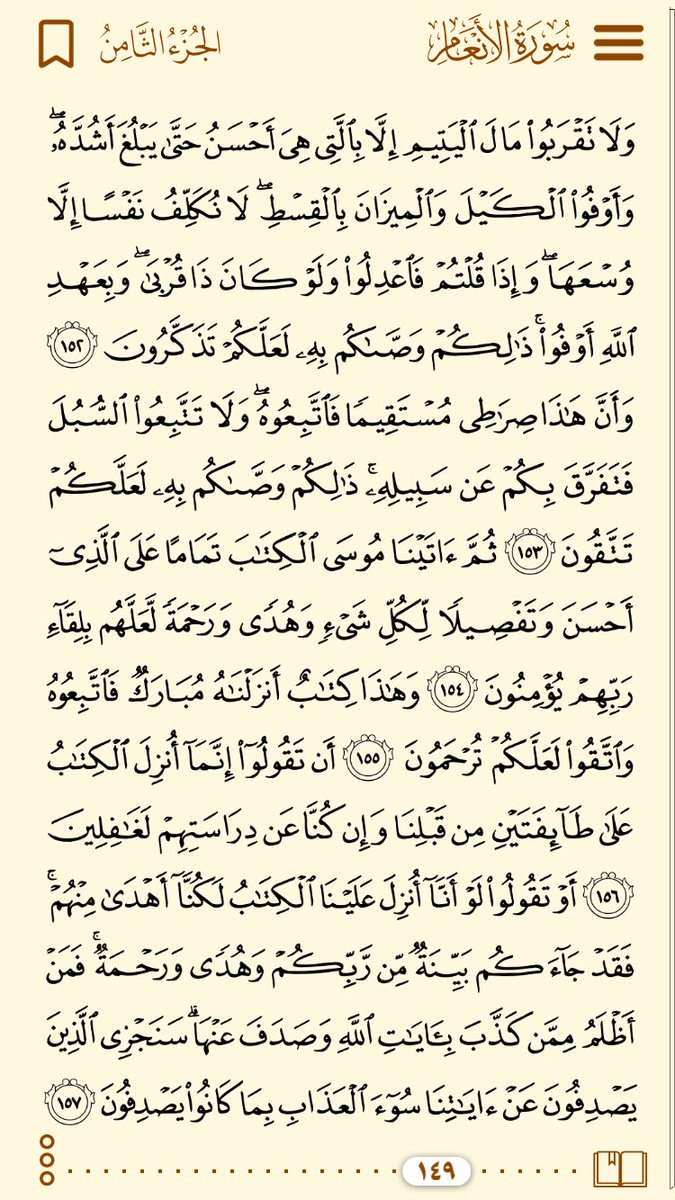 سُورَةُ الأَنْعَامِ
الجُزْءُ الثَّامِنُ
وَلَا تَقْرَبُوا۟ مَالَ ٱلْيَتِيمِ إِلَّا بِٱلَّتِى هِىَ أَحْسَنُ حَتَّىٰ يَبْلُغَ أَشُدَّهُۥ ۖ
وَأَوْفُوا۟ ٱلْكَيْلَ وَٱلْمِيزَانَ بِٱلْقِسْطِ ۖ لَا نُكَلِّفُ نَفْسًا إِلَّا
وُسْعَهَا ۖ وَإِذَا قُلْتُمْ فَٱعْدِلُوا۟ وَلَوْ كَانَ ذَا قُرْبَىٰ ۖ وَبِعَهْدِ
ٱللَّهِ أَوْفُوا۟ ۚ ذَٰلِكُمْ وَصَّىٰكُم بِهِۦ لَعَلَّكُمْ تَذَكَّرُونَ ١٥٢
وَأَنَّ هَـٰذَا صِرَٰطِى مُسْتَقِيمًا فَٱتَّبِعُوهُ ۖ وَلَا تَتَّبِعُوا۟ ٱلسُّبُلَ
فَتَفَرَّقَ بِكُمْ عَن سَبِيلِهِۦ ۚ ذَٰلِكُمْ وَصَّىٰكُم بِهِۦ لَعَلَّكُمْ
تَتَّقُونَ ١٥٣ ثُمَّ ءَاتَيْنَا مُوسَى ٱلْكِتَـٰبَ تَمَامًا عَلَى ٱلَّذِىٓ
أَحْسَنَ وَتَفْصِيلًا لِّكُلِّ شَىْءٍ وَهُدًى وَرَحْمَةً لَّعَلَّهُم بِلِقَآءِ
رَبِّهِمْ يُؤْمِنُونَ ١٥٤ وَهَـٰذَا كِتَـٰبٌ أَنزَلْنَـٰهُ مُبَارَكٌ فَٱتَّبِعُوهُ
وَٱتَّقُوا۟ لَعَلَّكُمْ تُرْحَمُونَ ١٥٥ أَن تَقُولُوٓا۟ إِنَّمَآ أُنزِلَ ٱلْكِتَـٰبُ
عَلَىٰ طَآئِفَتَيْنِ مِن قَبْلِنَا وَإِن كُنَّا عَن دِرَاسَتِهِمْ لَغَـٰفِلِينَ
١٥٦ أَوْ تَقُولُوا۟ لَوْ أَنَّآ أُنزِلَ عَلَيْنَا ٱلْكِتَـٰبُ لَكُنَّآ أَهْدَىٰ مِنْهُمْ ۚ
فَقَدْ جَآءَكُم بَيِّنَةٌ مِّن رَّبِّكُمْ وَهُدًى وَرَحْمَةٌ ۚ فَمَنْ
أَظْلَمُ مِمَّن كَذَّبَ بِـَٔايَـٰتِ ٱللَّهِ وَصَدَفَ عَنْهَا ۗ سَنَجْزِى ٱلَّذِينَ
يَصْدِفُونَ عَنْ ءَايَـٰتِنَا سُوٓءَ ٱلْعَذَابِ بِمَا كَانُوا۟ يَصْدِفُونَ ١٥٧
١٤٩